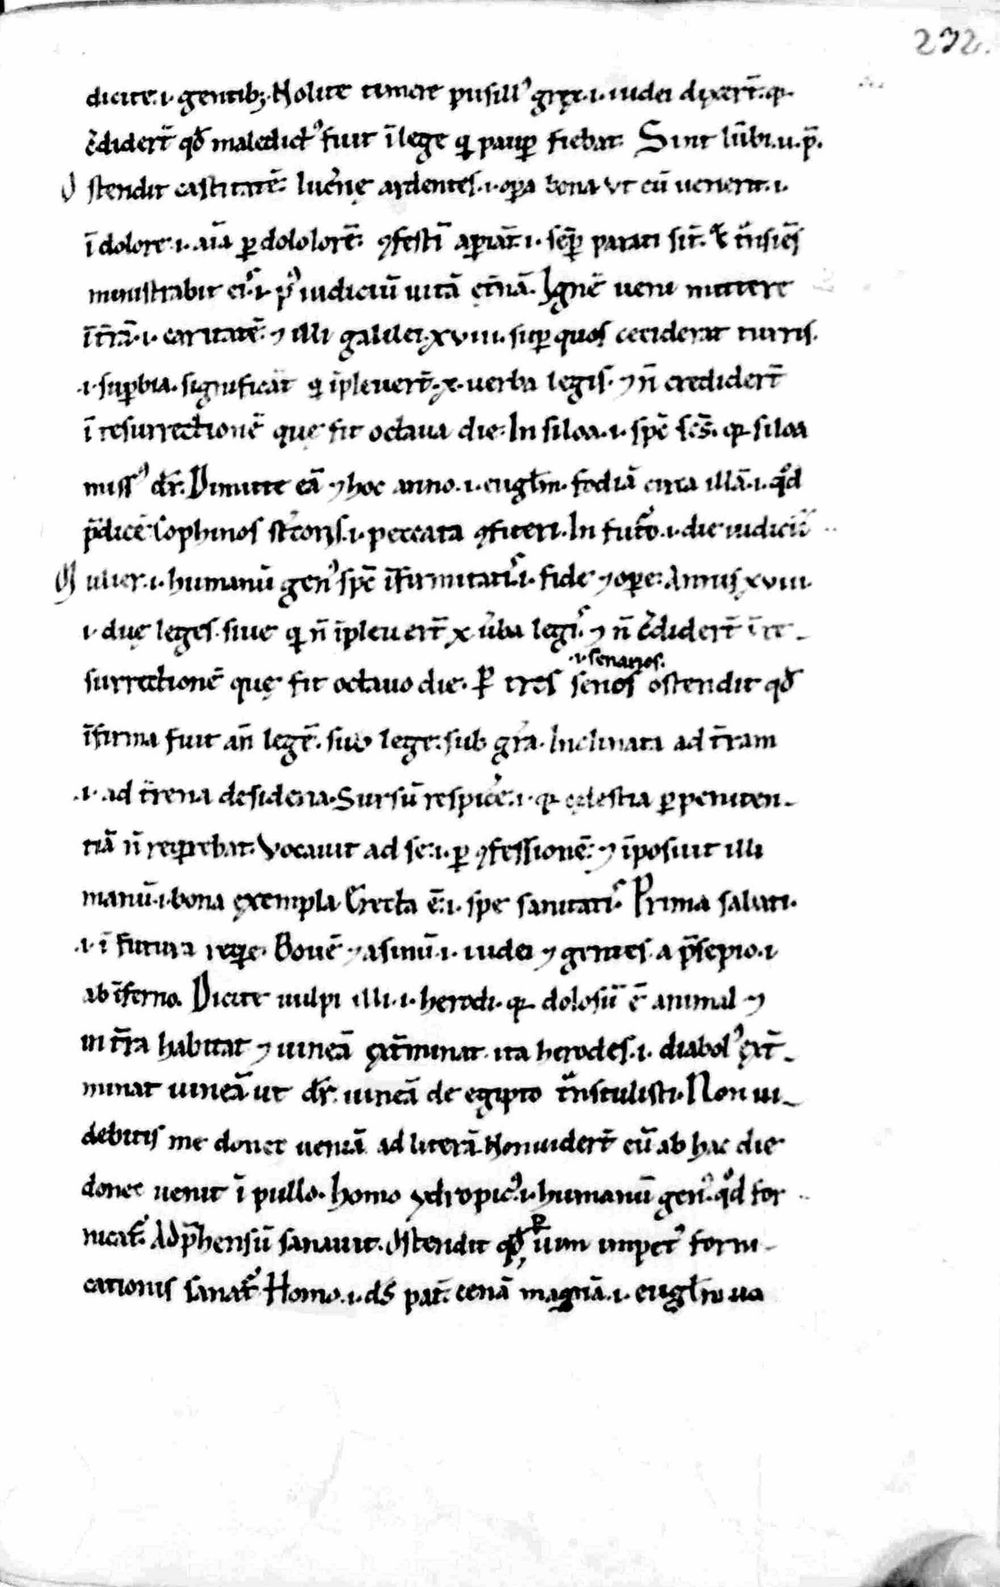 232.
dicite .i. gentibꝫ. Nolite timere pusill᷒ grex .i. iudei dixer̄t. qꝛ
c̄didert̄ qđ maledict᷒ fuit ī lege qi paup̱ fiebat. Sint lūbi .u. p̄.
Ostendit castitatē. lucerne ardentes .i. oꝑa bona. vt cū uenerit .i.
ī dolore .i. aīa ꝑ dololorē. ꝯfestī aꝑiāt .i. semꝑ parati sīt. & tn̄siēs
ministrabit ei᷒ .i. p᷒ iudiciū uitā et̄nā. Ignē ueni mittere
ī tr̄ā .i. caritatē. ⁊ illi galilei .xviii. suꝑ quos ceciderat turris.
.i. suꝑbia. significāt qi īpleuert̄ .x. uerba legis. ⁊ n̄ crediderт̄
ī resurrectionē que fit octaua die. In siloa .i. spē sc̄s. qꝛ siloa
miss᷒ dr̄. Dimitte eā ⁊ hoc anno .i. euglm̄. fodiā circa illā .i. qđ
p̄dicē. Cophinos stercoris .i. peccata ꝯfiteri. In futo .i. die iudicii
Mulier .i. humanū gen᷒ spē īfirmitatis .i. fide ⁊ oꝑe. Annis xviii.
.i. due leges. siue qi n̄ īpleuert̄ x. ūba legis ⁊ n̄ c̄didert̄ ī re-
surrectionē que fit octauo die. Ꝑ tres senos ostendit qđ
.i. senarios.
īfirma fuit an̄ legē. sub lege. sub gr̄a. Inclinata ad tr̄am
.i. ad tr̄ena desideria. Sursū respicere .i. qꝛ celestia ꝑ peniten-
tiā n̄ reqirebat. Vocauit ad se .i. ꝑ ꝯfessionē. ⁊ īposuit illi
manū .i. bona exempla. Erecta ē .i. spe sanitatis. Prima sabati.
.i. ī futura reqie. Bouē ⁊ asinū .i. iudei ⁊ gentes. a p̄sepio .i.
ab īferno. Dicite uulpi illi .i. herodi. qꝛ dolosū ē animal ⁊
in tr̄ra habitat ⁊ uineā ext̄minat. ita herodes .i. diabol᷒ ext̄-
minat uineā. ut dr̄. uineā de egipto tn̄stulisti. Non ui-
debitis me donec ueniā. ad literā. Non uidert̄ eū ab hac die
donec uenit ī pullo. homo ydropic᷒ .i. humanū gen᷒. qđ for
nicat᷒. Adp̄hensū sanauit. Ostendit qđ ꝑ uim impet᷒ forni-
cationis sanat᷒. Homo .i. ds̄ pat̄. cenā magnā .i. euglīo ua